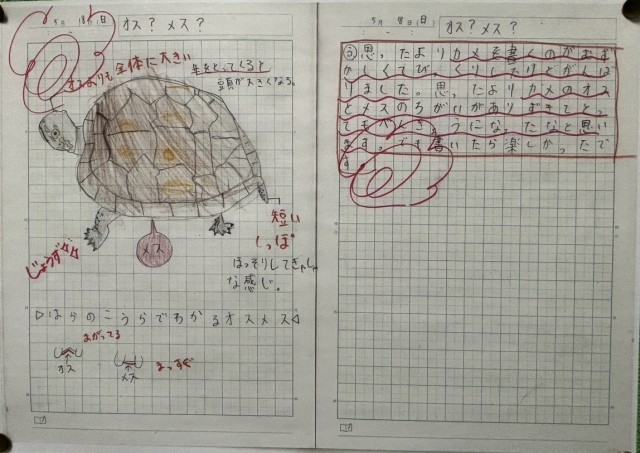 5月18日(日) オス?メス?
オスよりも全体に大きい
年をとってくると
頭が大きくなる。
短い
しっぽ
メス
ほっそりしてきゃしゃ
な感じ。
じょうず☆☆
▷はらのこうらでわかるオスメス◁
まがってる
オス
メス
まっすぐ
5月18日(日) オス?メス?
思ったよりカメを書くのがむず
かしくてびっくりしたけどがんば
りました。思ったよりカメのオス
とメスのちがいがありすぎてとっ
てもべんきょうになったなと思い
ます。でも書いたら楽しかったで
す。